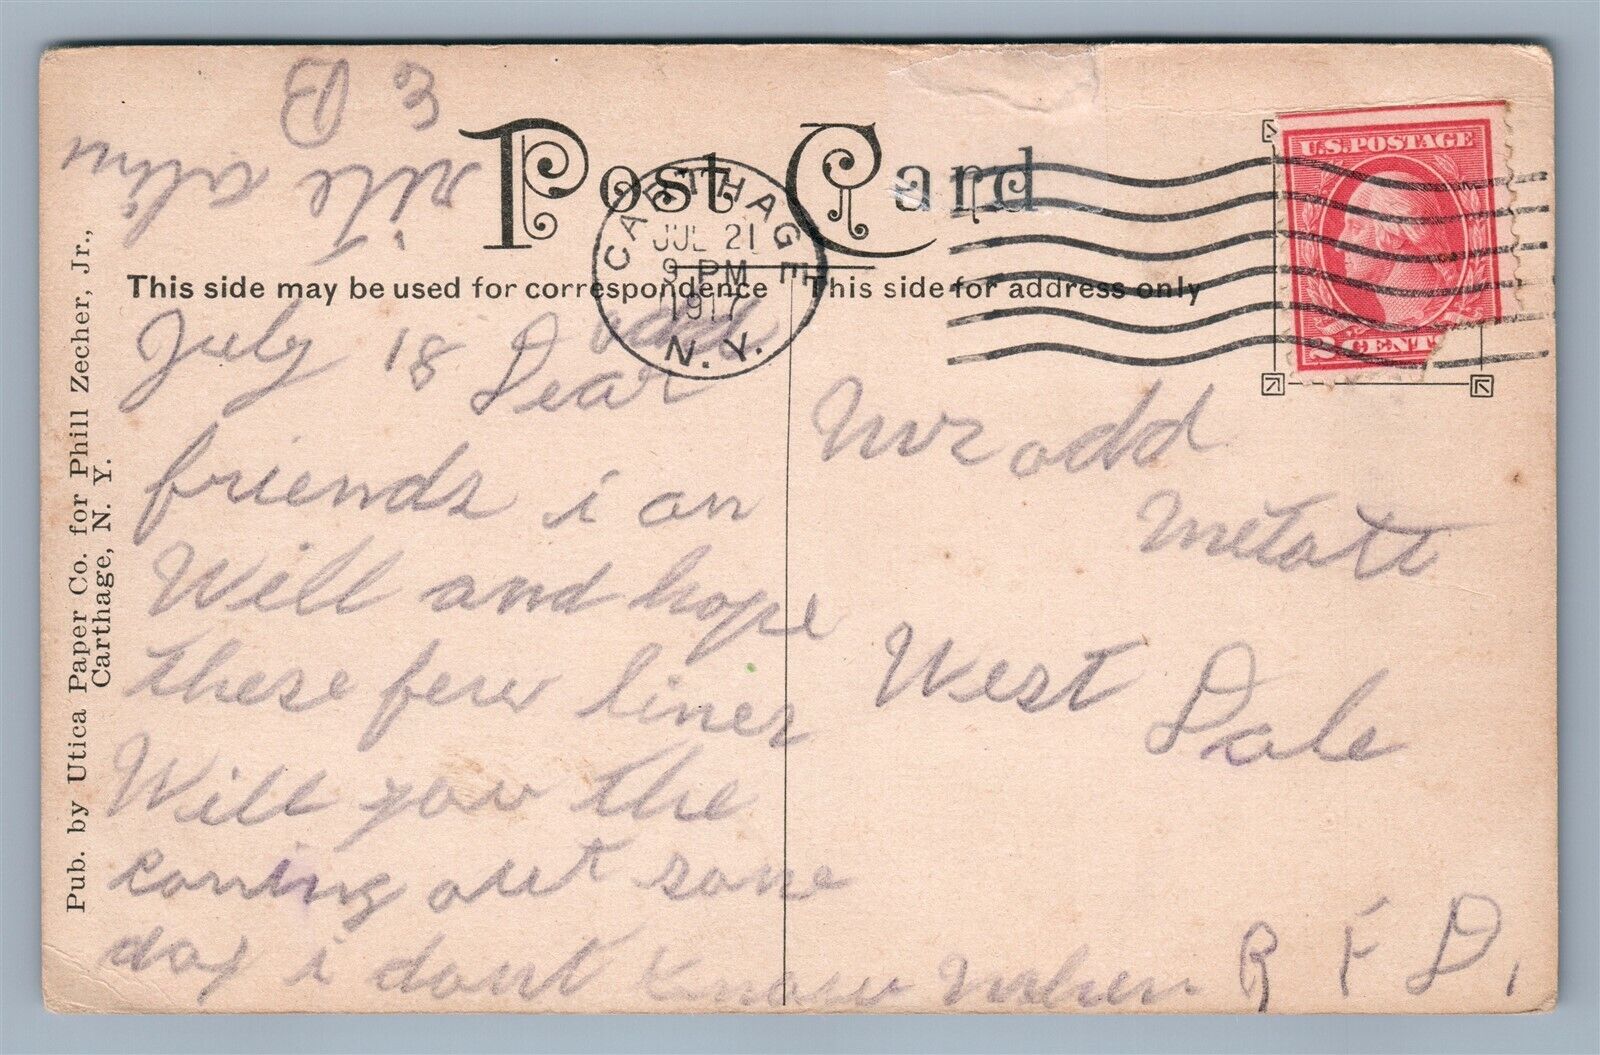 E B
rite
Post Card
CARTHAGE
JUL 21
9 PM
1917
N. Y.
U.S. POSTAGE
2 CENTS
This side may be used for correspondence
This side for address only
July 18 Dear odd
friends i an
Will and hope
these few lines
Will you the
coning out sone
day i dont know when
Mr odd
Metott
West Dale
R F D,
Pub. by Utica Paper Co. for Phill Zecher, Jr.,
Carthage, N. Y.